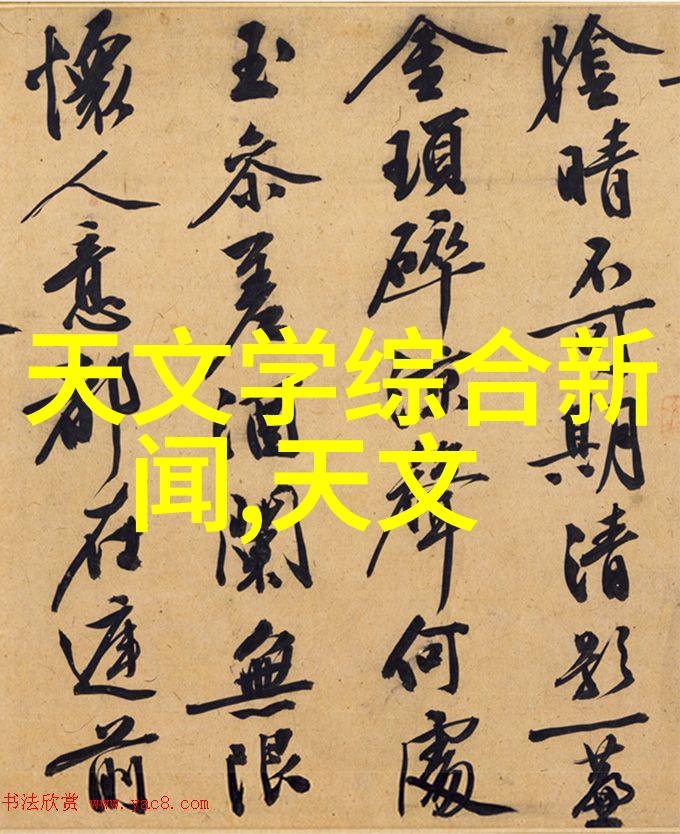 陰晴不可期清影一簾
金瑣碎涼聲何處
玉參差酒闌無限
懷人意都在庭前
天文学综合新
闻,天文
书法欣赏 www.yac8.com